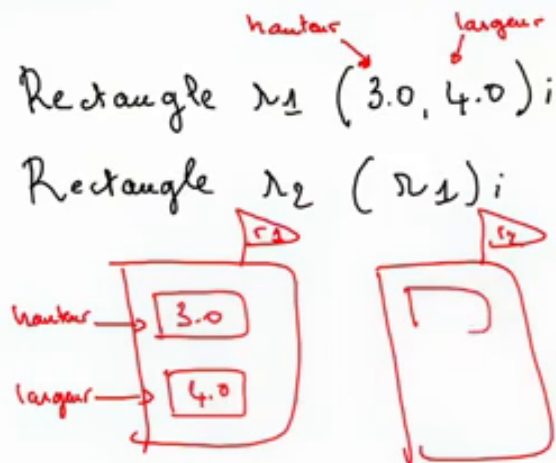 hauteur largeur
Rectangle r1 (3.0, 4.0);
Rectangle r2 (r1);
r1 r2
hauteur 3.0
largeur 4.0